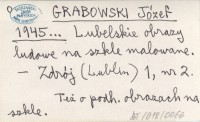 GRABOWSKI Józef
1945... Lubelskie obrazy
ludowe na szkle malowane.
– Zdrój (Lublin) 1, nr 2.
Też o podh. obrazach na
szkle.